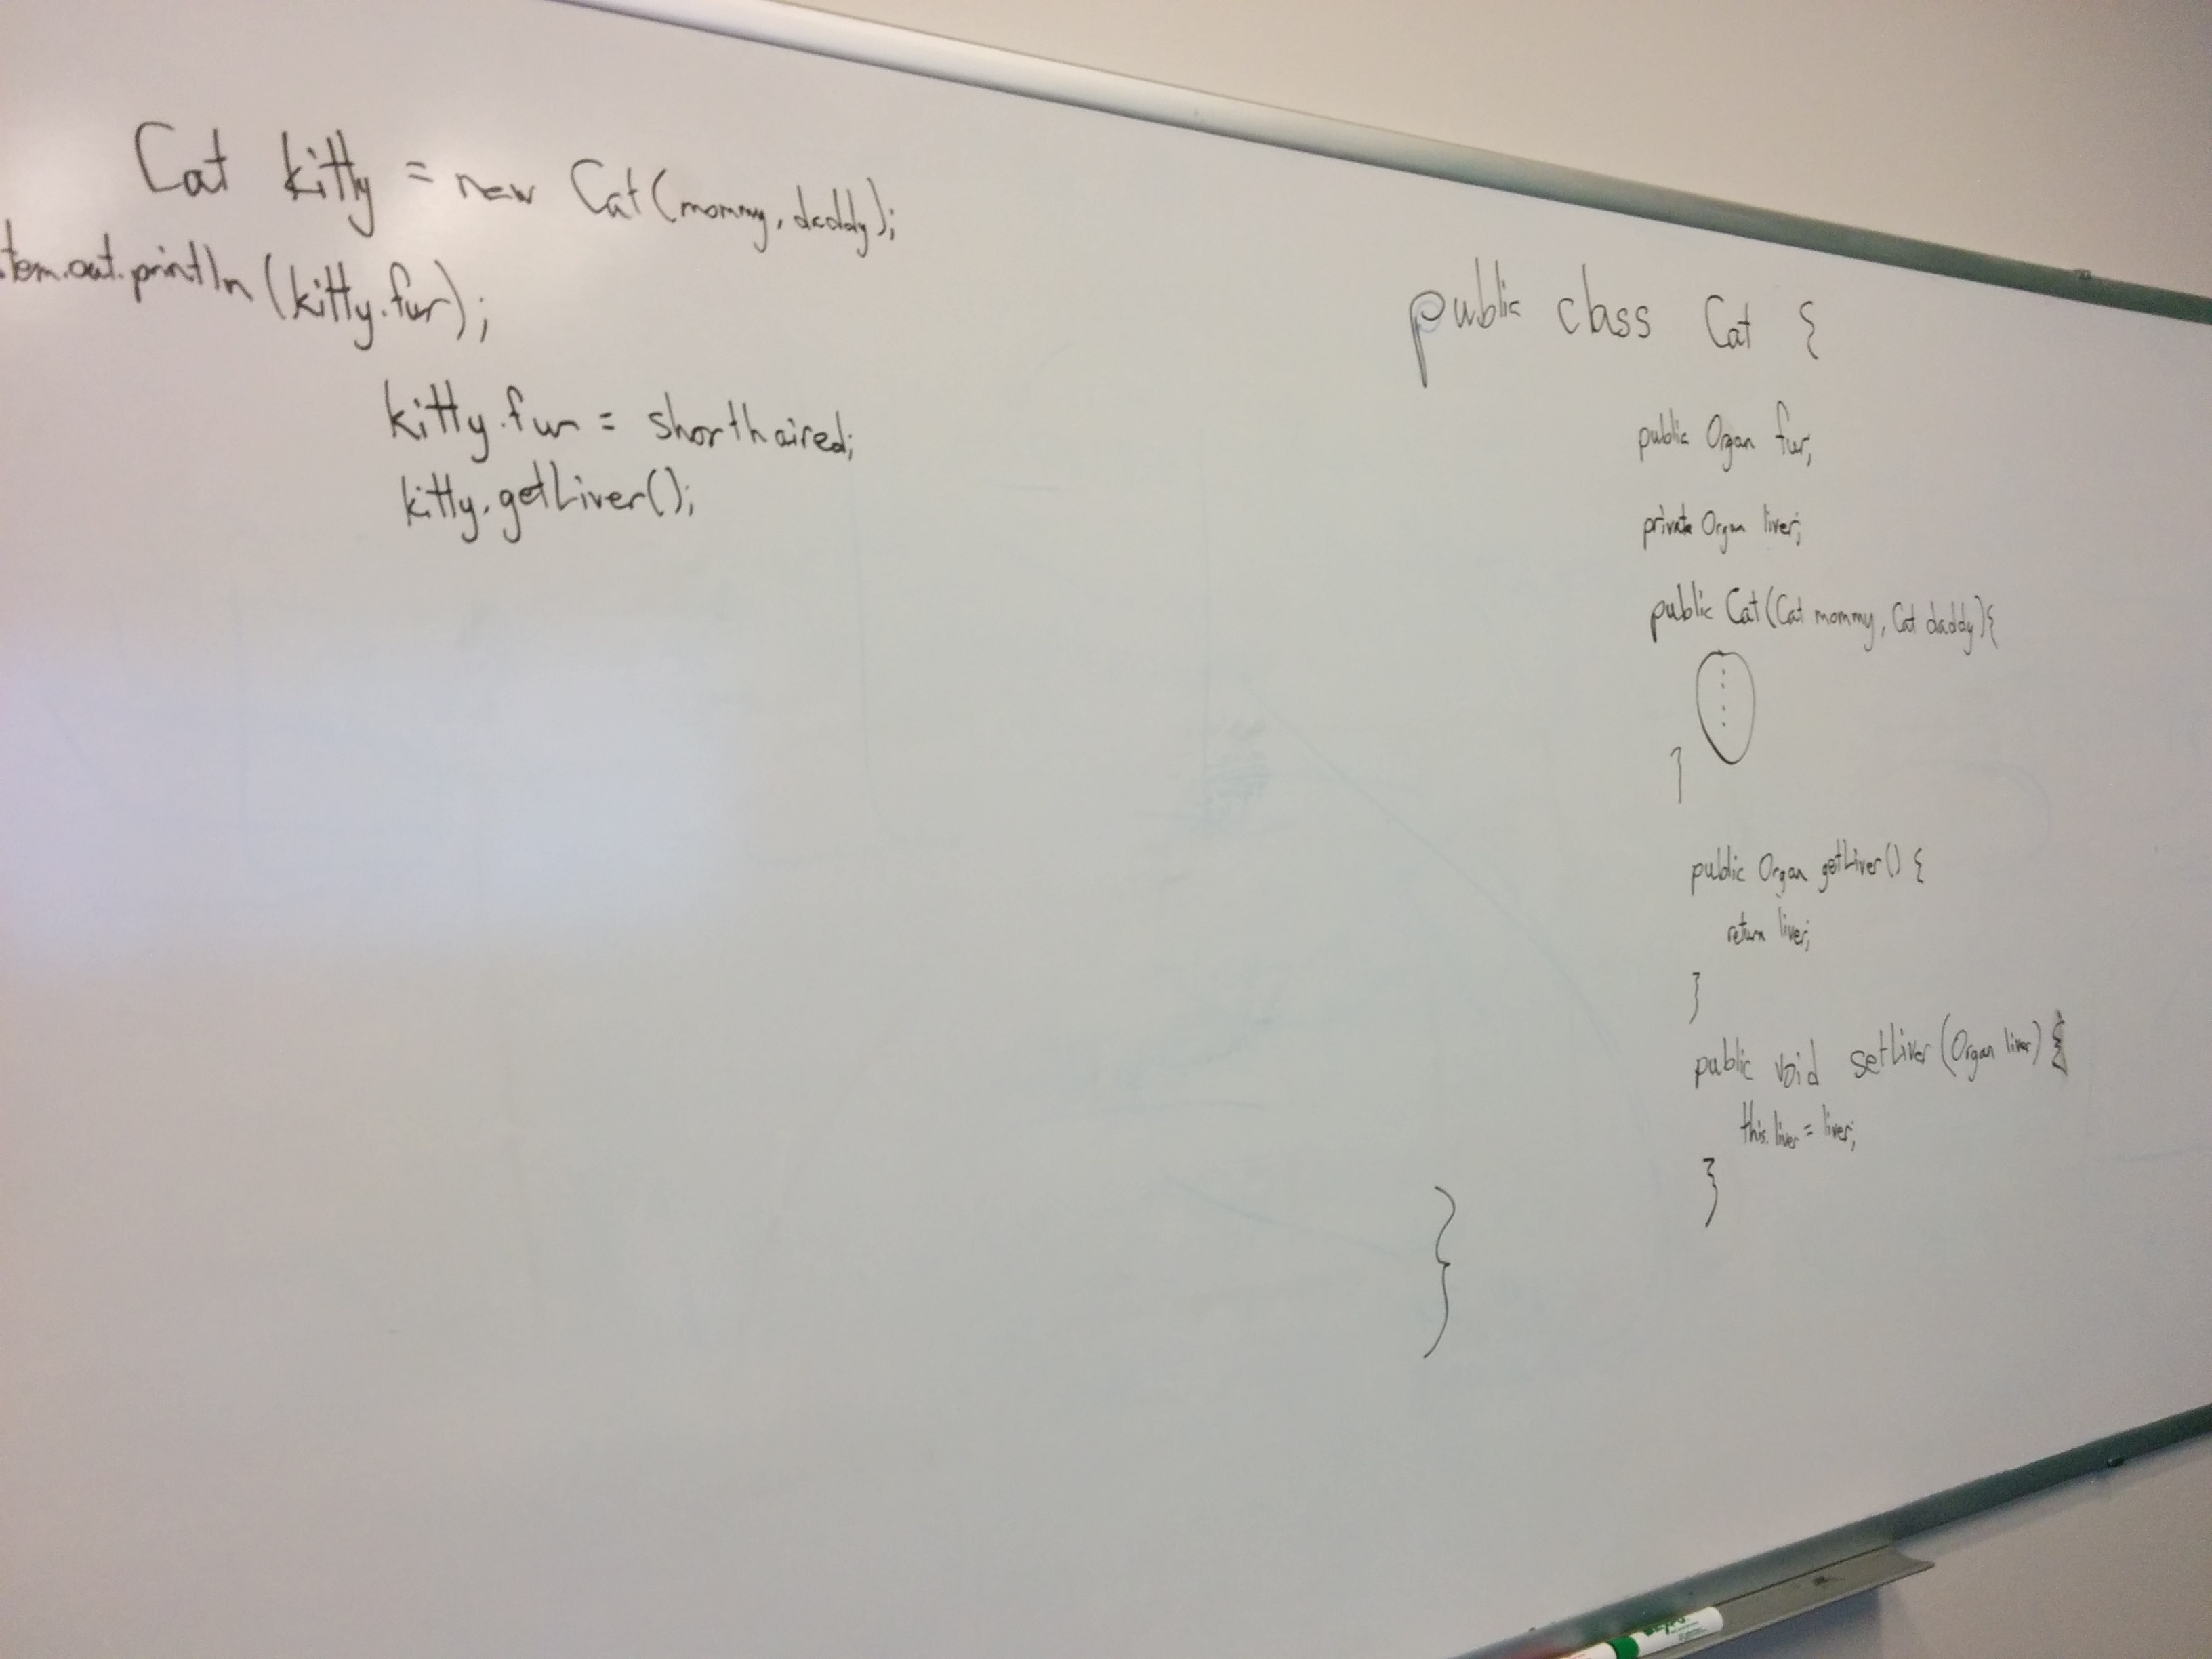 Cat kitty = new Cat(mommy, daddy);
tem.out.println(kitty.fur);
kitty.fur = shorthaired;
kitty.getLiver();
public class Cat {
public Organ fur;
private Organ liver;
public Cat(Cat mommy, Cat daddy){
}
public Organ getLiver() {
return liver;
}
public void setLiver(Organ liver) {
this.liver = liver;
}
}
EXPO